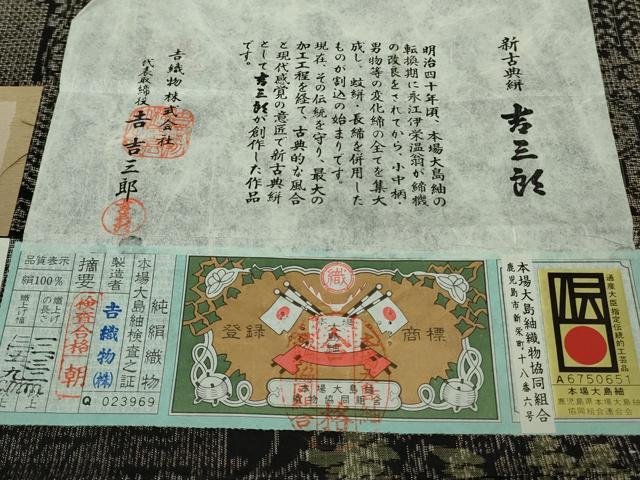 新古典絣
吉三郎
明治四十年頃、本場大島紬の
転換期に永江伊栄温翁が締機
の改良をされてから、小中柄・
男物等の変化締の全てを集大
成し、蚊絣・長締を併用した
ものが割込の始まりです。
現在、その伝統を守り、最大の
加工工程を経て、古典的な風合
と現代感覚の意匠で新古典絣
として吉三郎が創作した作品
です。
吉織物株式会社
代表取締役 吉 吉三郎
通産大臣指定伝統的工芸品
伝
A6750651
本場大島紬
鹿児島県本場大島紬
協同組合連合会
本場大島紬織物協同組合
鹿児島市新栄町十八番六号
織
登録
商標
本場
大島紬
本場大島紬
織物協同組合
合格
純絹織物
本場大島紬検査之証
製造者
吉織物㈱
Q 023969
摘要
検査合格
朝
品質表示
絹100%
織上り
の長さ
織上り幅